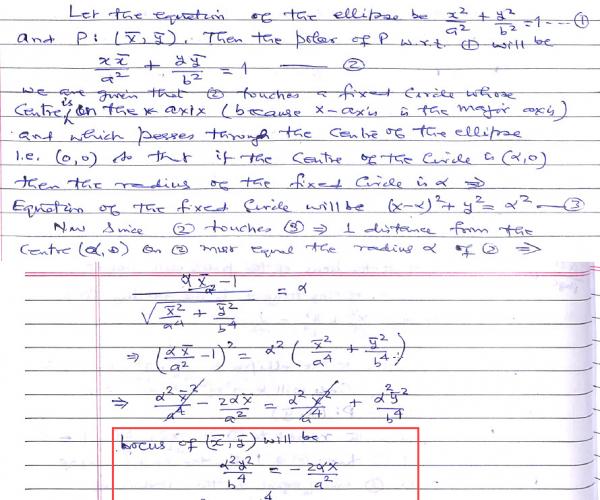 Let the equation of the ellipse be x²/a² + y²/b² = 1 --- ①
and P: (x̄, ȳ). Then the polar of P w.r.t. ① will be
x x̄/a² + y ȳ/b² = 1 —— ②
we are given that ② touches a fixed circle whose
centre is on the x axix (because x-axis is the major axis)
and which passes through the centre of the ellipse
i.e. (0,0) so that if the centre of the circle is (α,0)
then the radius of the fixed circle is α ⇒
Equation of the fixed circle will be (x-α)² + y² = α² — ③
Now since ② touches ③ ⇒ ⊥ distance from the
centre (α,0) on ② must equal the radius α of ② ⇒
(α x̄/a² - 1) / √(x̄²/a⁴ + ȳ²/b⁴) = α
⇒ (α x̄/a² - 1)² = α² (x̄²/a⁴ + ȳ²/b⁴)
⇒ α² x̄²/a⁴ - 2α x̄/a² = α² x̄²/a⁴ + α² ȳ²/b⁴
Locus of (x̄, ȳ) will be
α² y²/b⁴ = - 2αx/a²